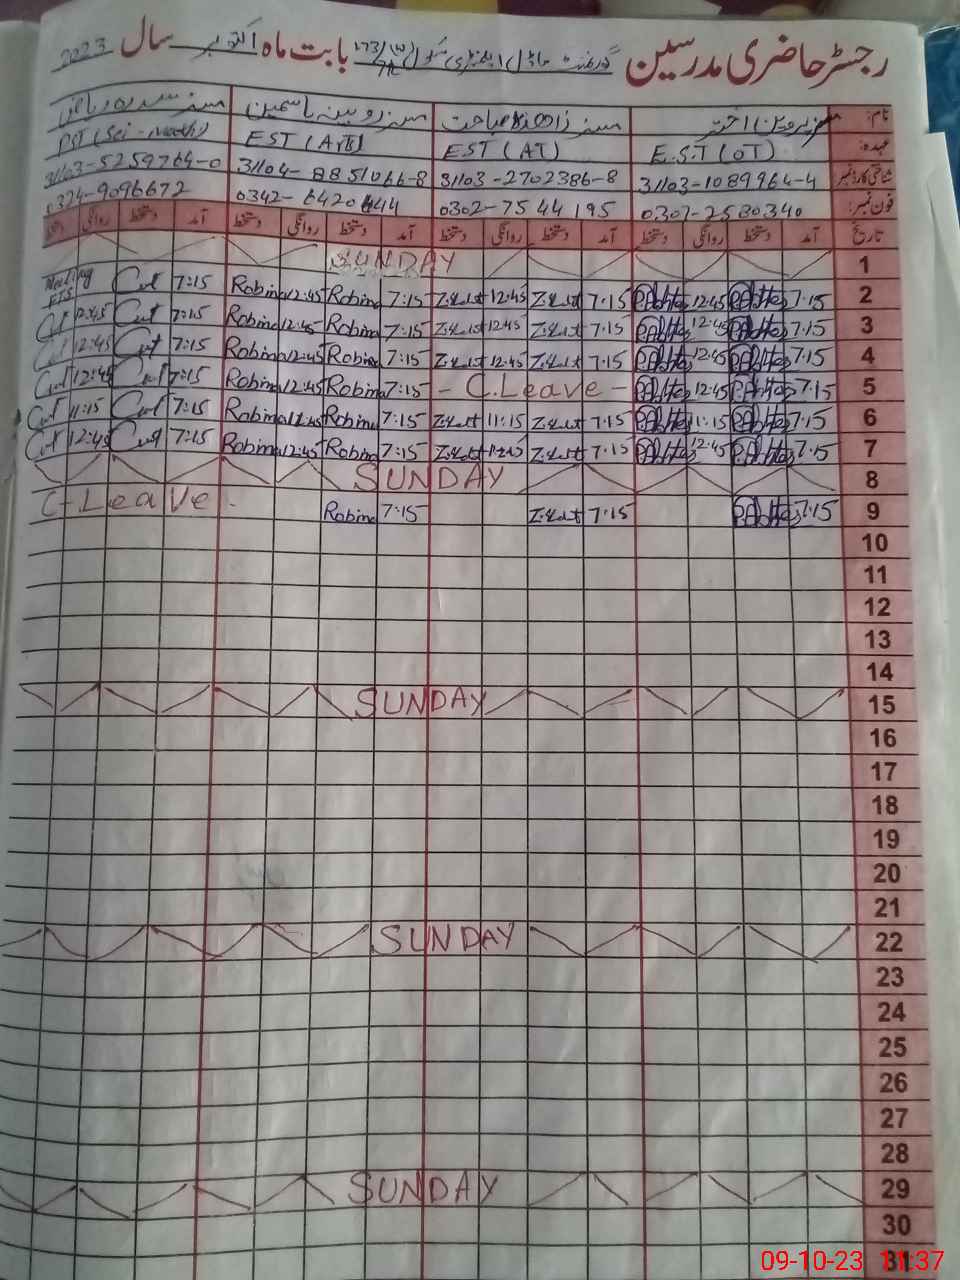 رجسٹر حاضری مدرسین گورنمنٹ ماڈل ایلیمنٹری سکول بابت ماہ اکتوبر سال 2023
نام: مسز پروین اختر مسز زاھدہ صباحت مسز روبینہ یاسمین مسز سدرہ ریاض
عہدہ: E.S.T (OT) EST (AT) EST (Arts) PST (Sci-Math)
شناختی کارڈ نمبر 31103-1089964-4 31103-2702386-8 31104-8851066-8 31103-5259764-0
فون نمبر: 0307-2580340 0302-7544195 0342-6420444 0324-9096672
تاریخ آمد دستخط روانگی دستخط آمد دستخط روانگی دستخط آمد دستخط روانگی دستخط آمد دستخط روانگی دستخط
SUNDAY 1
Meeting 7:15 Robina 12:45 Robina 7:15 12:45 7:15 12:45 7:15 2
12:45 7:15 Robina 12:45 Robina 7:15 12:45 7:15 12:45 7:15 3
12:45 7:15 Robina 12:45 Robina 7:15 12:45 7:15 12:45 7:15 4
12:45 7:15 Robina 12:45 Robina 7:15 - C.Leave - 12:45 7:15 5
11:15 7:15 Robina Robina 7:15 11:15 7:15 11:15 7:15 6
12:45 7:15 Robina 12:45 Robina 7:15 7:15 12:45 7:15 7
SUNDAY 8
C-Leave Robina 7:15 7:15 7:15 9
10
11
12
13
14
SUNDAY 15
16
17
18
19
20
21
SUNDAY 22
23
24
25
26
27
28
SUNDAY 29
30
31
09-10-23 11:37